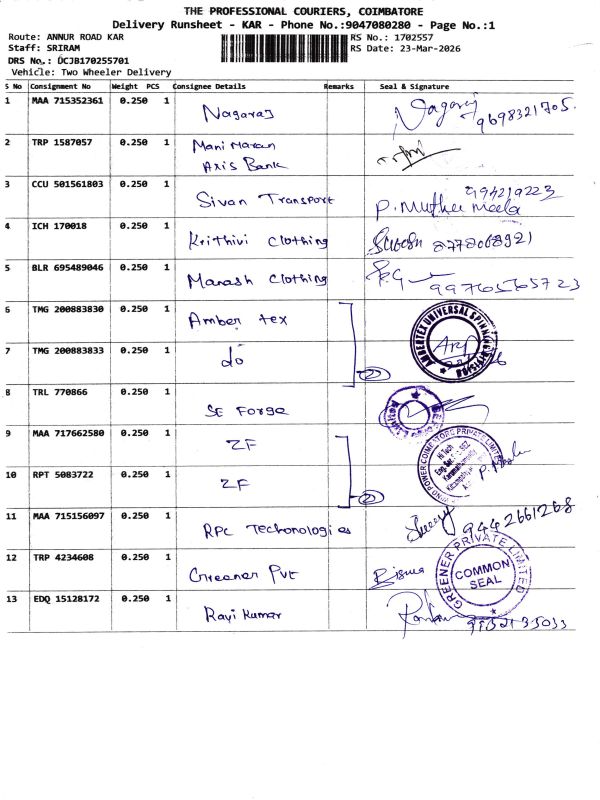 THE PROFESSIONAL COURIERS, COIMBATORE
Delivery Runsheet - KAR - Phone No.:9047080280 - Page No.:1
Route: ANNUR ROAD KAR
RS No.: 1702557
Staff: SRIRAM
RS Date: 23-Mar-2026
DRS No.: UCJB170255701
Vehicle: Two Wheeler Delivery
S No Consignment No Weight PCS Consignee Details Remarks Seal & Signature
1 MAA 715352361 0.250 1 Nagaraj Nagaraj 9698321705.
2 TRP 1587057 0.250 1 Mani Maran
Axis Bank
3 CCU 501561803 0.250 1 Sivan Transport 994219223
P. Muthu
4 ICH 170018 0.250 1 Krithivi Clothing
5 BLR 695489046 0.250 1 Manash Clothing 9976565723
6 TMG 200883830 0.250 1 Amber tex AMBERTEX UNIVERSAL SPINNING DIVISION
7 TMG 200883833 0.250 1 do 2
8 TRL 770866 0.250 1 SE Forge
9 MAA 717662580 0.250 1 ZF
10 RPT 5083722 0.250 1 ZF 2
11 MAA 715156097 0.250 1 RPC Techonologies 9442661268
12 TRP 4234608 0.250 1 Greener Pvt GREENER PRIVATE LIMITED COMMON SEAL
13 EDQ 15128172 0.250 1 Ravi Kumar